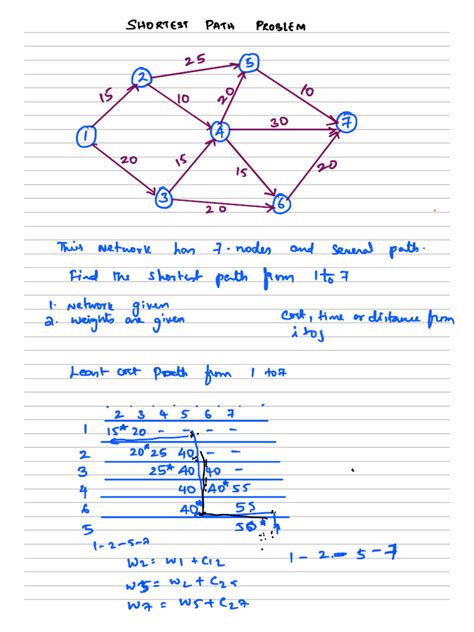 SHORTEST PATH PROBLEM
25
5
2
15
10
20
10
1
4
30
7
20
15
15
20
3
20
6
This network has 7-nodes and several path.
Find the shortest path from 1 to 7
1. Network given
2. Weights are given
Cost, time or distance from
i to j
Least cost Path from 1 to 7
2 3 4 5 6 7
1 15* 20 - - - -
2 20* 25 40 - -
3 25* 40 40 -
4 40 40* 55
6 40* 55
5 50*
1-2-5-7
W2 = W1 + C12
W5 = W2 + C25
W7 = W5 + C27
1-2-5-7